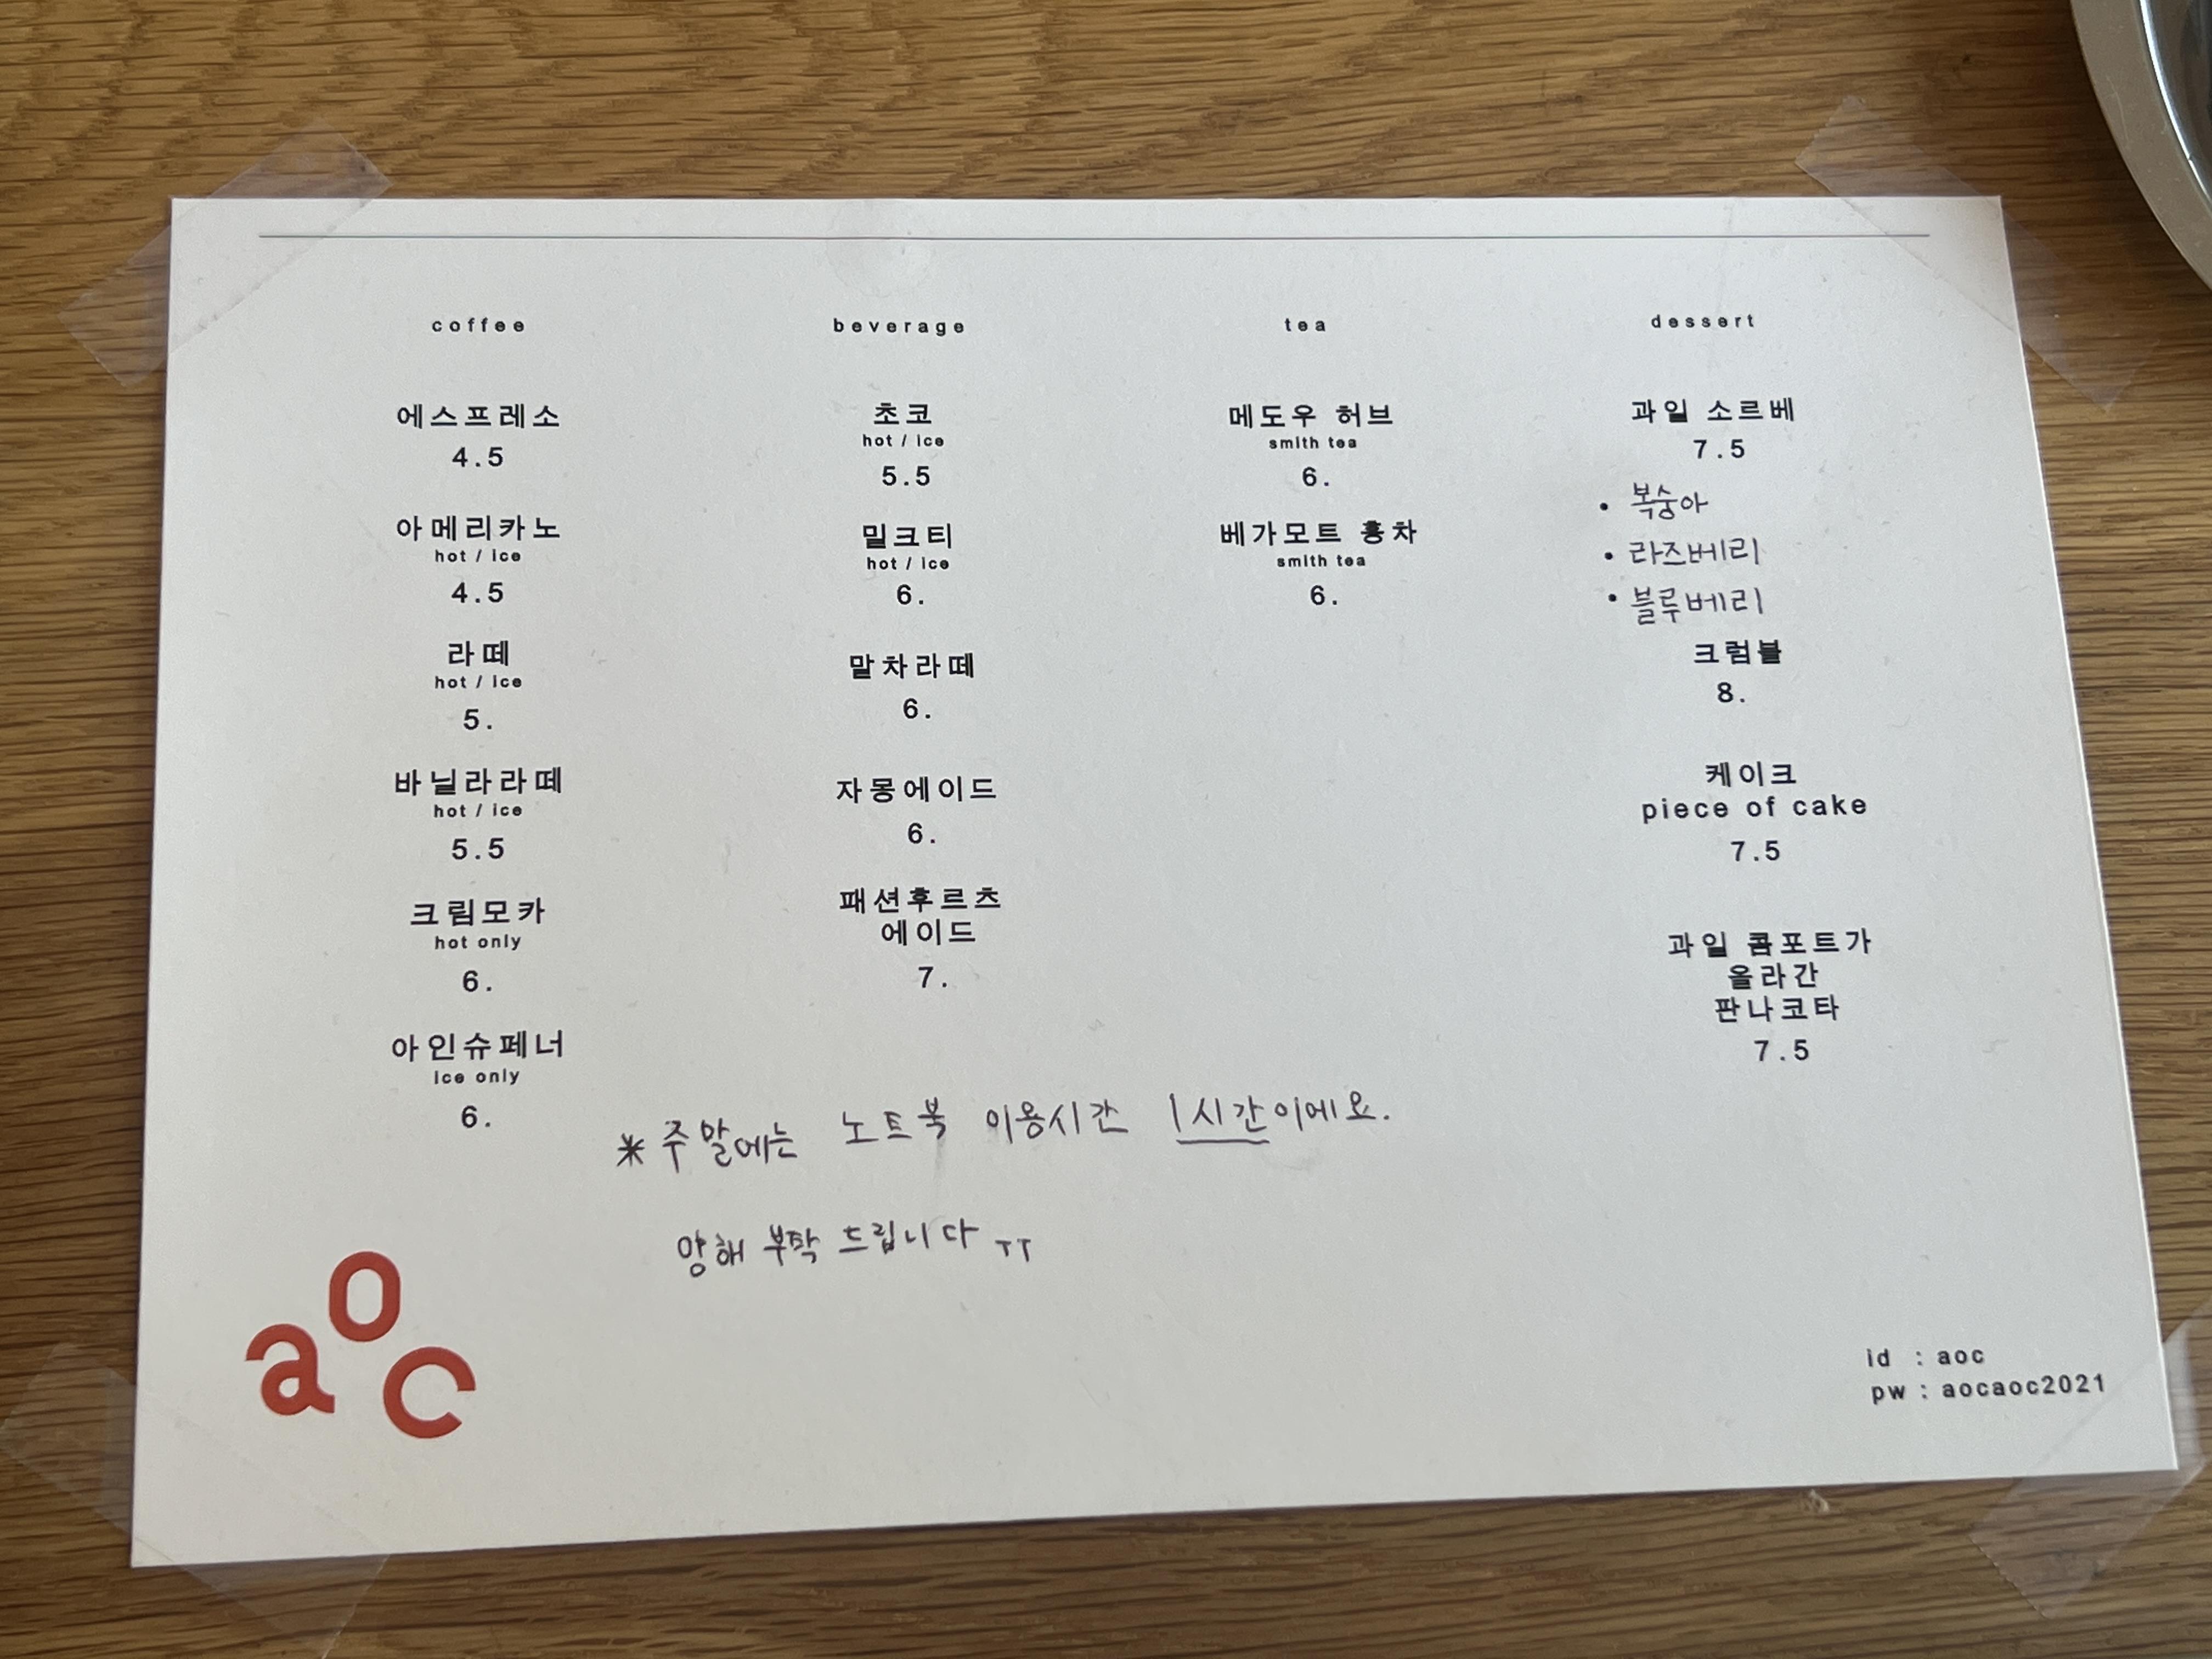 coffee
에스프레소
4.5
아메리카노
hot / ice
4.5
라떼
hot / ice
5.
바닐라라떼
hot / ice
5.5
크림모카
hot only
6.
아인슈페너
ice only
6.
beverage
초코
hot / ice
5.5
밀크티
hot / ice
6.
말차라떼
6.
자몽에이드
6.
패션후르츠
에이드
7.
tea
메도우 허브
smith tea
6.
베가모트 홍차
smith tea
6.
dessert
과일 소르베
7.5
• 복숭아
• 라즈베리
• 블루베리
크럼블
8.
케이크
piece of cake
7.5
과일 콤포트가
올라간
판나코타
7.5
* 주말에는 노트북 이용시간 1시간이에요.
양해 부탁 드립니다 ㅜㅜ
aoc
id : aoc
pw : aocaoc2021